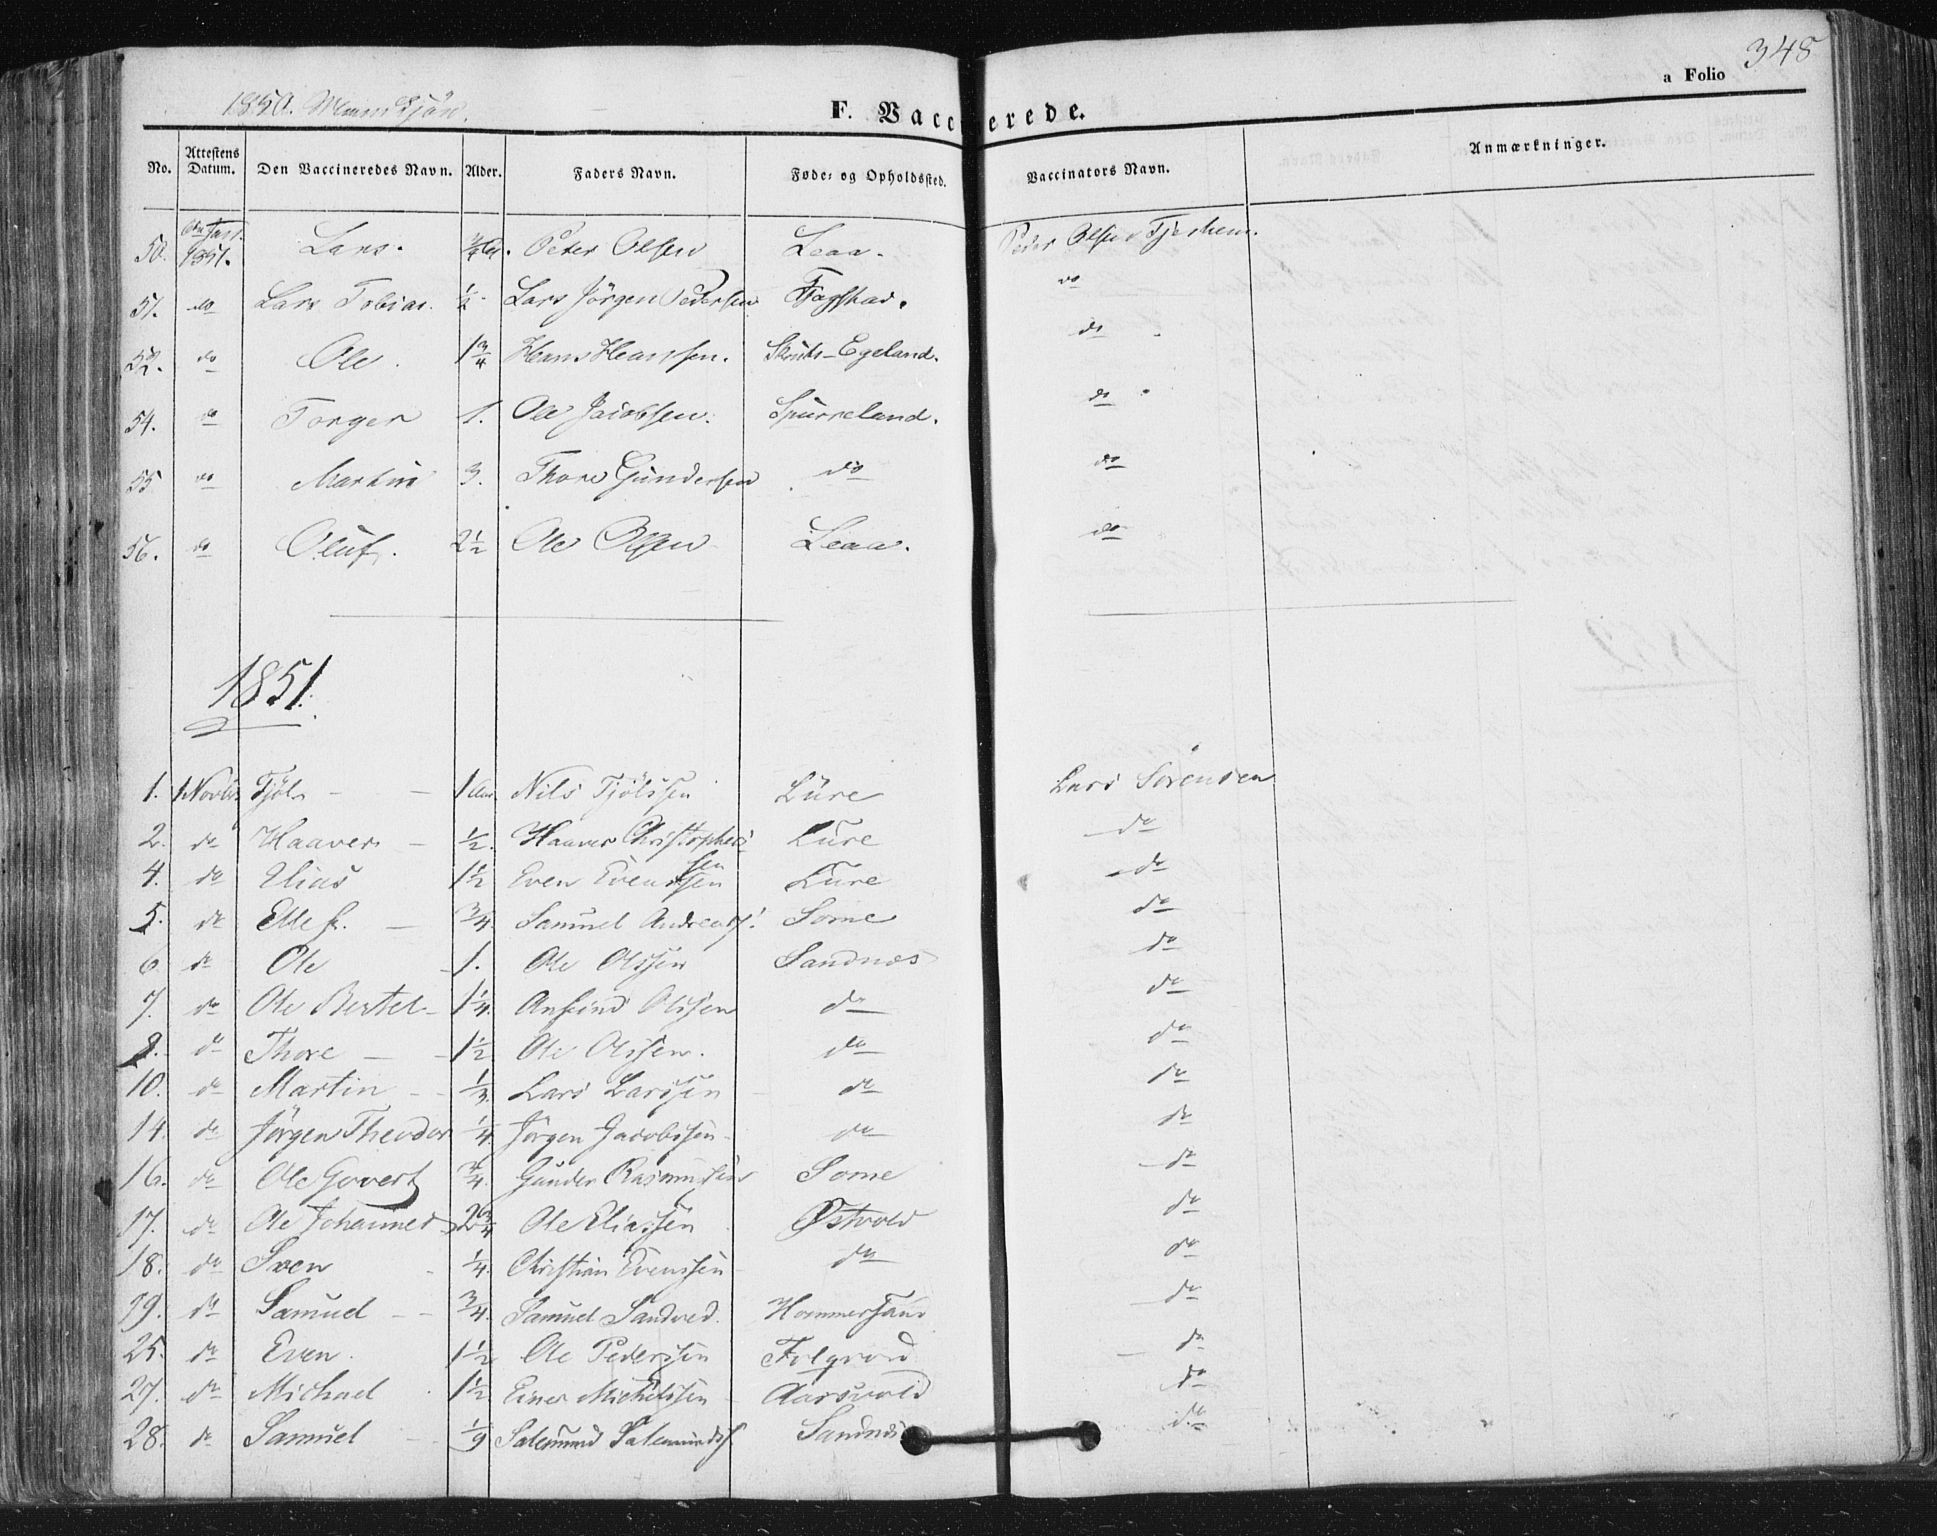 348
a Folio
1850. Mandkjön.
F. Vaccinerede.
No. Attestens Datum. Den Vaccineredes Navn. Alder. Faders Navn. Føde- og Opholdssted. Vaccinators Navn. Anmærkninger.
50. 1851. Lars. Peder Olsen Leaa. Peder Olsen
51. do Lars Tobias. ½ Lars Jörgen Pedersen Fagstad. do
52. do Ole. 1¾ Hans Hanssen. Egeland. do
54. do Torger 1. Ole Jacobsen. Spurreland. do
55 do Martin 3. Thore Gundersen do do
56. do Oluf. 2½ Ole Olsen Leaa. do
1851.
1. 1 Novbr Tjöl 1 Aar Nils Tjölssen Lure Lars Sörensen
2. do Haaver ½. Haaver Christophersen Lure do
4. do Elias 1½ Even Evenssen Lure do
5. do Ellef. ¾. Samuel Andreass. Some do
6 do Ole 1. Ole Olssen Sandnæs do
7. do Ole Bertel 1¼. Anfind Olssen do do
9. do Thore 1½ Ole Olssen. do do
10. do Martin ⅓. Lars Larssen do do
14. do Jörgen Theodor ¼. Jörgen Jacobssen do do
16. do Ole Govert ¾. Gunder Rasmussen Some do
17. do Ole Johannes 2¾ Ole Eliassen Østvold do
18. do Sven ¼. Christian Evenssen do do
19. do Samuel ¾. Samuel Sandved. Hommersand do
25. do Even. 1½ Ole Pederssen Folqvord do
27. do Michael 1½ Einer Michelssen Aarsvold do
28. do Samuel 1/9 Salemund Salemunds Sandnæs do